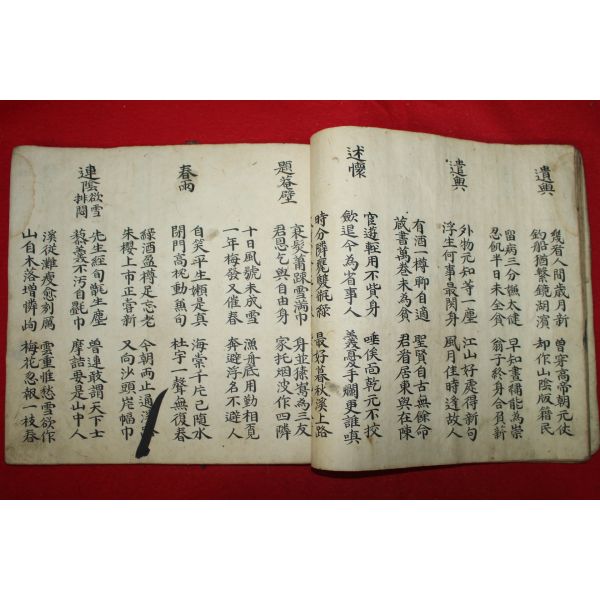 遣興
幾看人間歲月新 曾穿高帝朝元仗
釣船猶繫鏡湖濱 却作山陰版籍民
留病三分太健 早知書能為崇
忍飢半日未全貧 翁子終身合負薪
遣興
外物元知等一塵 江山好處得新句
浮生何事最関身 風月佳時逢故人
有酒一樽聊自適 聖賢自古無餘命
蔵書萬卷未為貧 君省居東與在陳
述懷
官遊輕用不貲身 唾俟高乾元不挍
飲退今為省事人 義憂手爛更誰嗔
時分隣甕雙瓶綠 最好暮秋溪上路
題菴壁
衰髮蕭踈雪滿巾 身並猿為三友
君恩乞與自由身 家托烟波作四隣
十日風號未成雪 漁舟底用勤相覓
一年梅發又催春 奔避浮名不避人
春雨
自笑平生嬾是真 海棠千片已隨水
閉門高枕動無旬 杜宇一聲無復春
綠酒盈樽足忘老 今朝雨止通
朱櫻上市正嘗新 又向沙頭岸幅巾
連陰欲雪排悶
先生經旬甑生塵 曾連敢謂天下士
藜羹不污自氈巾 摩詰要是山中人
溪從灘瘦愈刻厲 雲重惟愁雪欲作
山自木落增嶙峋 梅花忍報一枝春